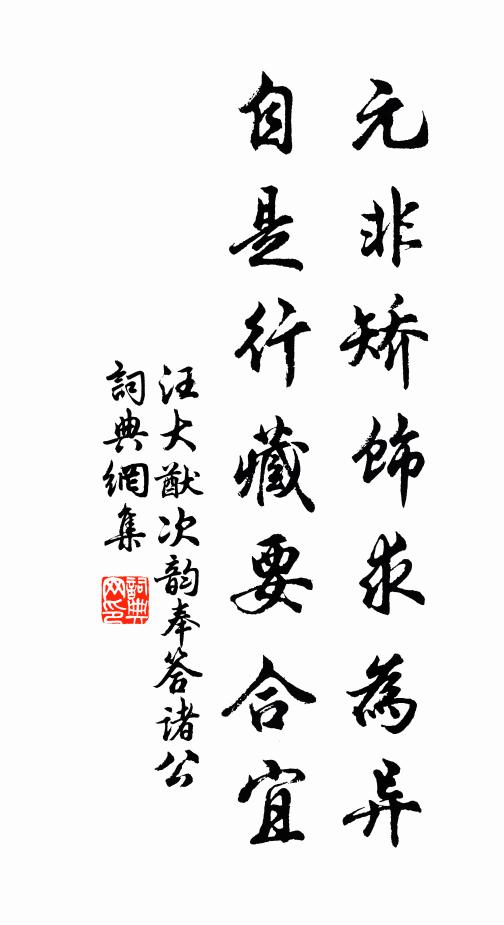 元非矫饰求為异
自是行藏要合宜
汪大猷次韵奉答诸公
詞典網集
詞典
网印